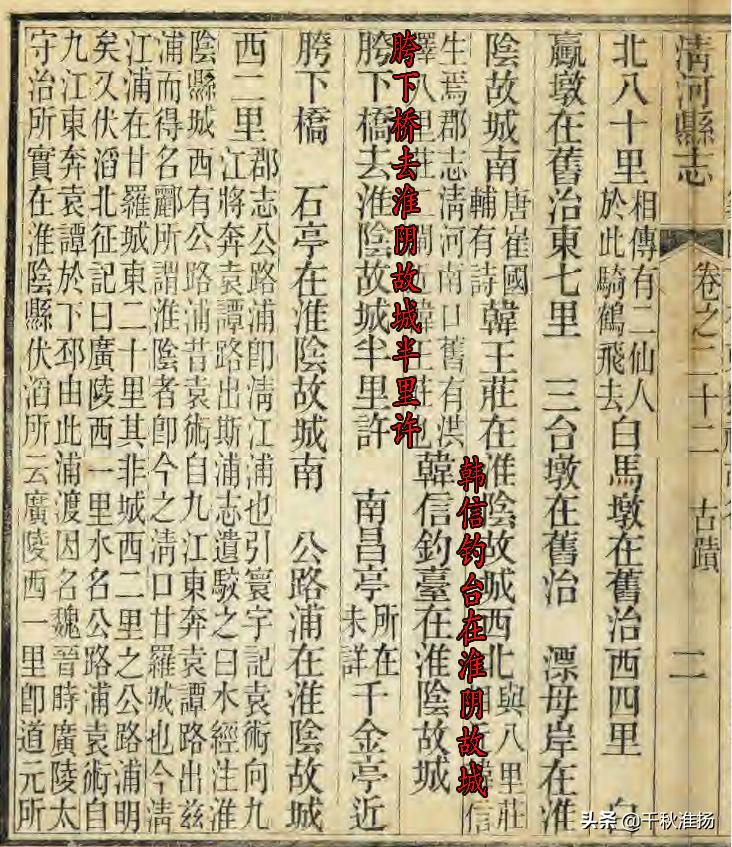 清河縣志 卷之二十二 古蹟 二
北八十里 相傳有二仙人
於此騎鶴飛去 白馬墩在舊治西四里
贏墩在舊治東七里 三台墩在舊治 漂母岸在淮
陰故城南 唐崔國
輔有詩 韓王莊在淮陰故城西北 與八里莊
信
生焉郡志清河南口舊有洪
澤八里莊二閘近韓王莊也 韓信釣臺在淮陰故城
韩信钓台在淮阴故城
胯下橋去淮陰故城半里許 南昌亭 所在
未詳 千金亭近
胯下桥去淮阴故城半里许
胯下橋 石亭在淮陰故城南 公路浦在淮陰故城
西二里 郡志公路浦卽清江浦也引寰宇記袁術向九
江將奔袁譚路出斯浦志遺駮之曰水經注淮
陰縣城西有公路浦昔袁術自九江東奔袁譚路出茲
浦而得名酈所謂淮陰者卽今之清口甘羅城也今清
江浦在甘羅城東二十里其非城西二里之公路浦明
矣又伏滔北征記曰廣陵西一里水名公路浦袁術自
九江東奔袁譚於下邳由此浦渡因名魏晉時廣陵太
守治所實在淮陰縣伏滔所云廣陵西一里卽道元所
头条 @千秋淮扬